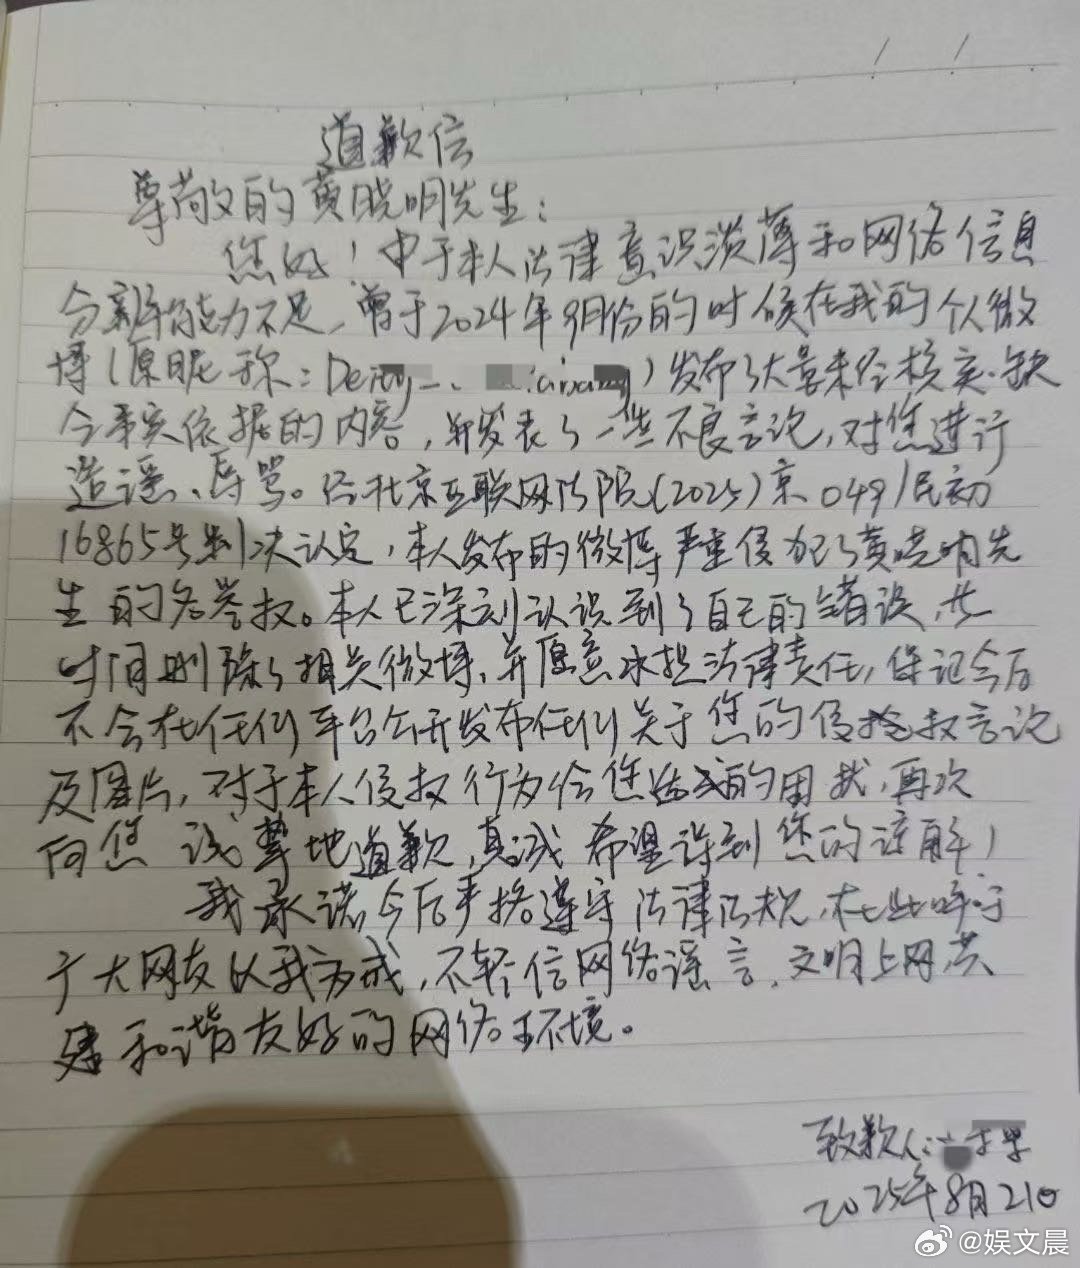 道歉信
尊敬的黄晓明先生：
您好！由于本人法律意识淡薄和网络信息
分辨能力不足，曾于2024年9月份的时候在我的个人微
博（原昵称：Deity_）发布了大量未经核实、缺
令事实依据的内容，并发表了一些不良言论，对您进行
造谣、辱骂。经北京互联网法院（2025）京0491民初
16865号判决认定，本人发布的微博严重侵犯了黄晓明先
生的名誉权。本人已深刻认识到了自己的错误，此
时间删除了相关微博，并愿意承担法律责任，保证今后
不会在任何平台公开发布任何关于您的侵权言论
及图片，对于本人侵权行为给您造成的困扰，再次
向您诚挚地道歉，真诚希望得到您的谅解！
我承诺今后严格遵守法律法规，在此呼吁
广大网友以我为戒，不轻信网络谣言，文明上网共
建和谐友好的网络环境。
致歉人：
2025年8月21日
@娱文晨